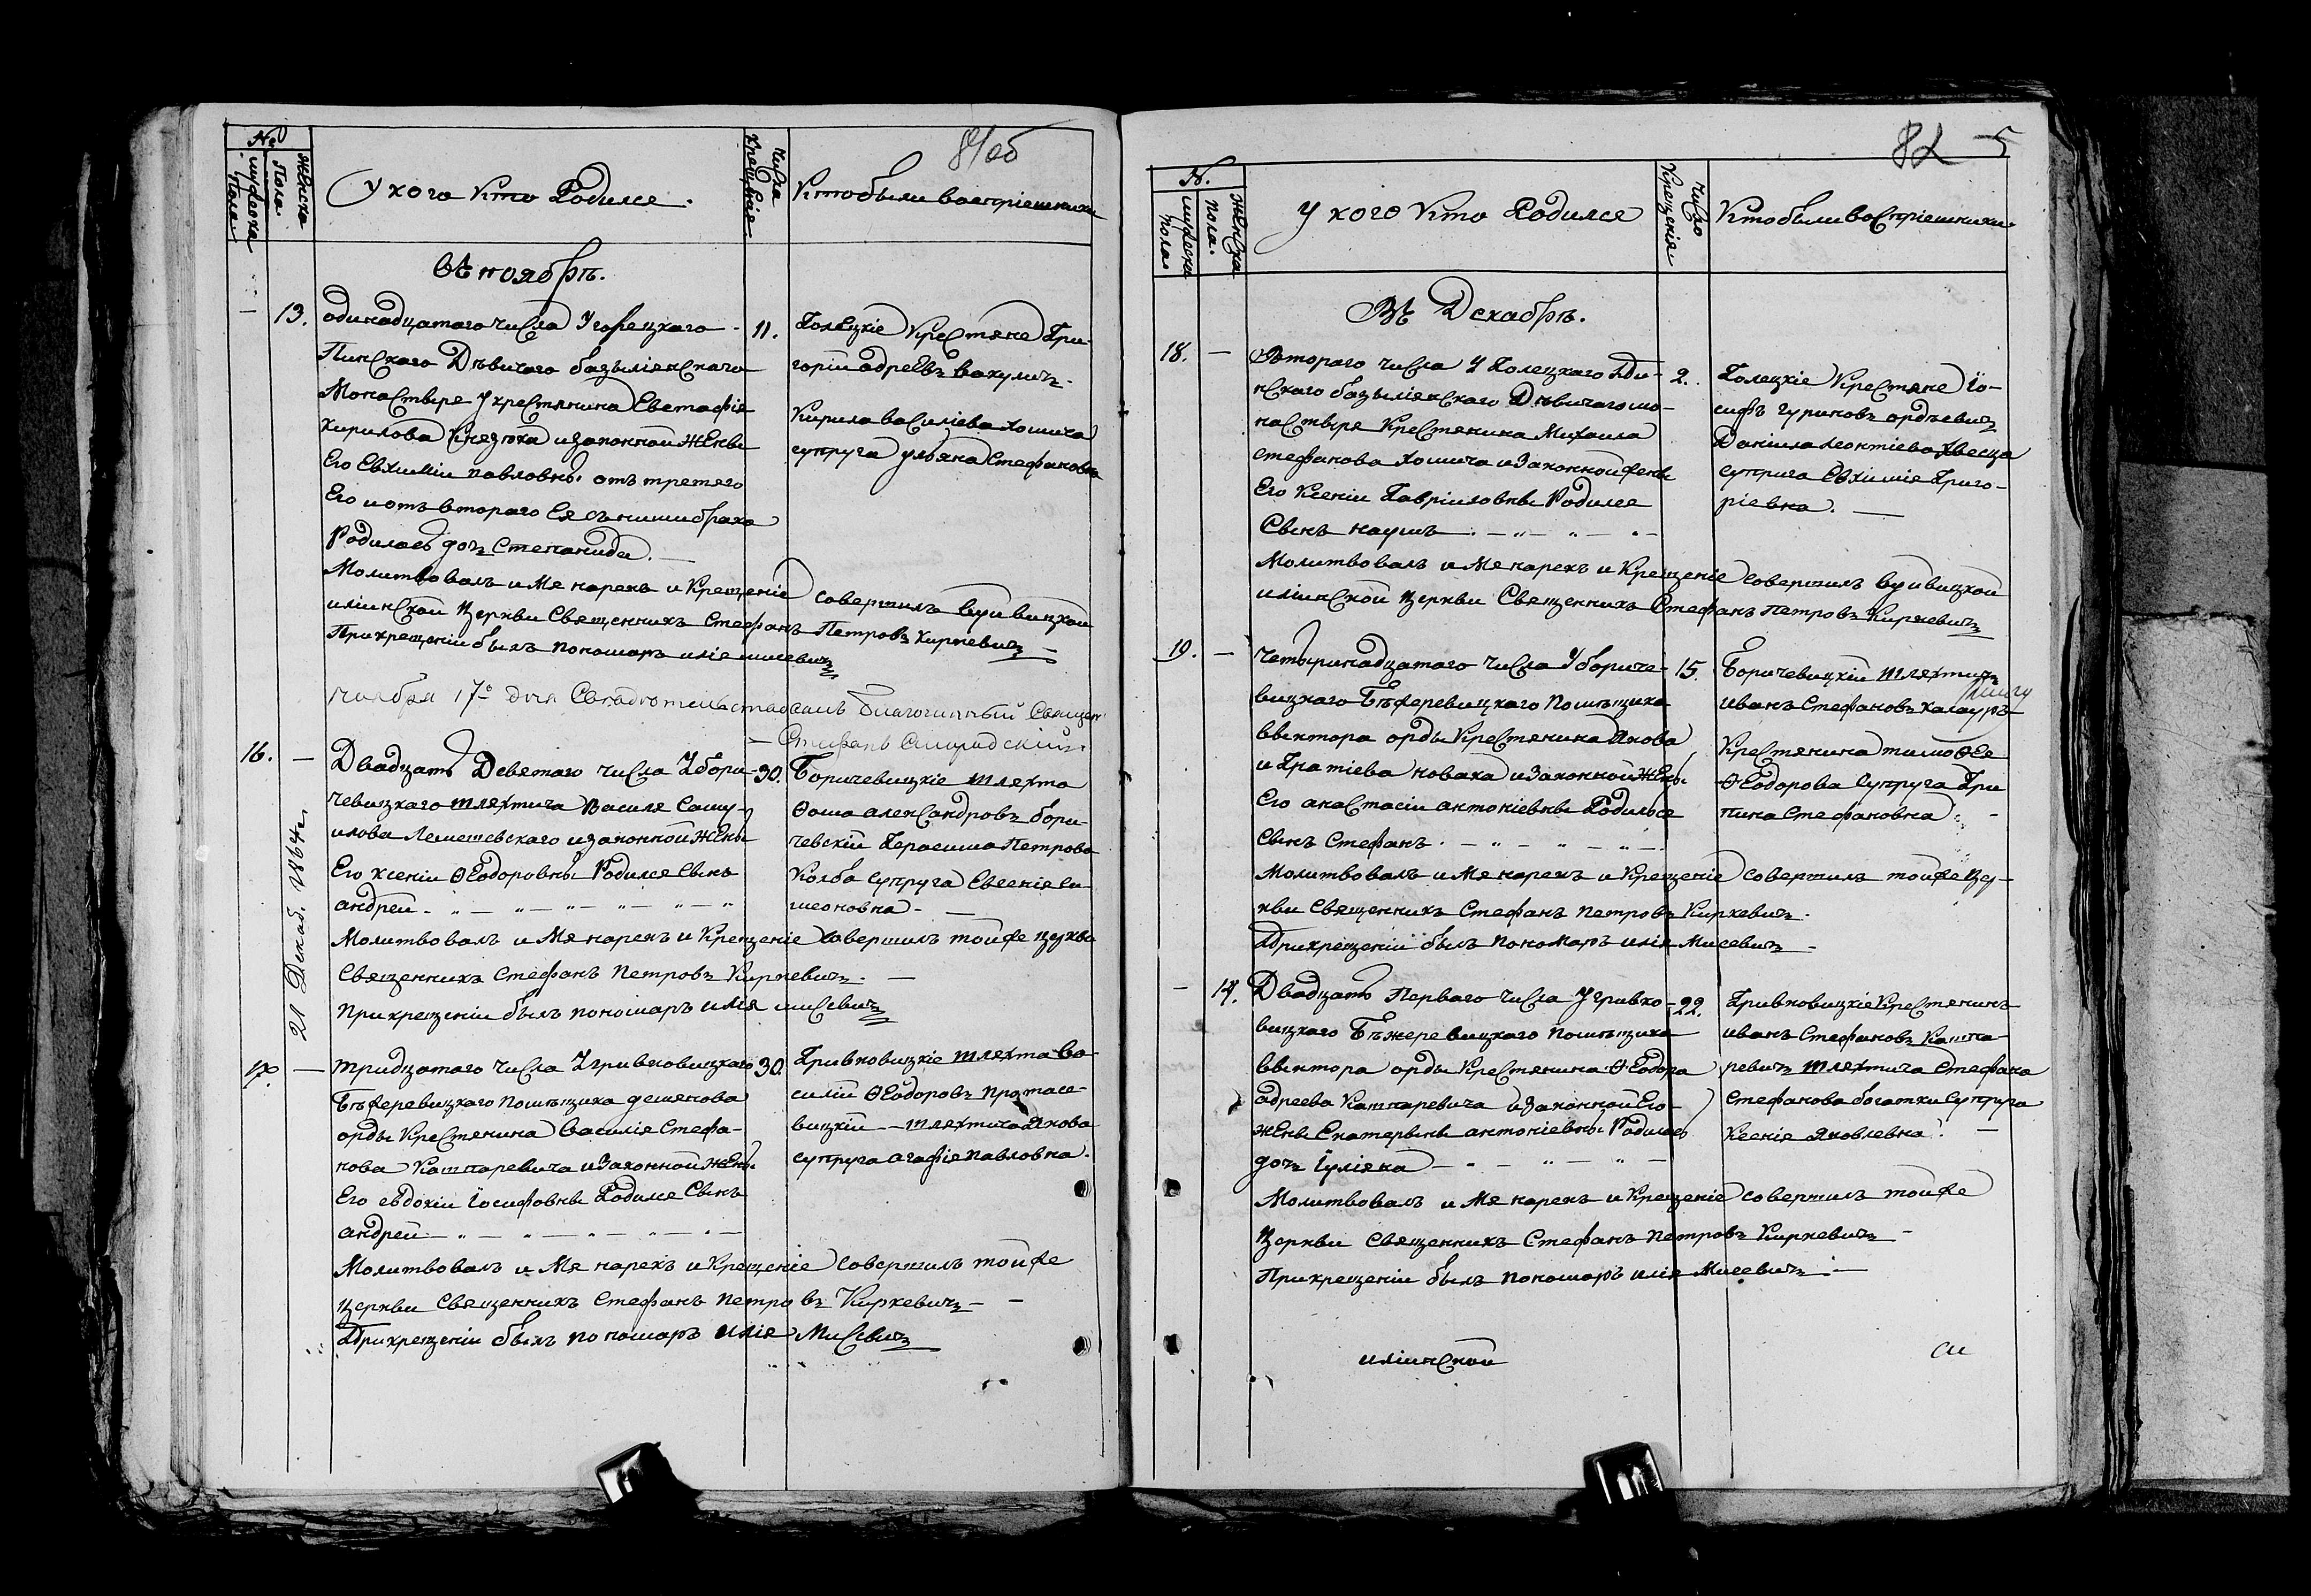 81об
№
мужеска Пола
Женска Пола.
У кого Кто Родился.
Числа Крещенія
Кто были воспріемники
Въ ноябрѣ.
— 13. одинадцатого числа У горецкаго 11.
Пинскаго Дѣвичаго базыліянскаго
Монастыря у крестянина Евстафія
Кирилова Князюка и законной Жены
Его Евхиміи павловны. отъ третяго
Его и отъ втораго Ея съ ними брака
Родилась дочь Степанида. —
Голецкіе Крестяне Гри-
горій адреевъ вакуличъ.
Кирила василіева хомича
супруга ульяна Стефановна
Молитвовалъ и Мя нарекъ и Крещеніе совершилъ
иліинской Церкви Священникъ Стефанъ Петровъ Киркевичъ —
При крещеніи былъ пономаръ илія мисевичъ
ноября 17го дня Свидѣтельствовалъ Благочинный Священ.
— Стефанъ
16. — Двадцать Девятаго числа У бори- 30.
чевицкаго шляхтича Василя Саму-
илова Лемешевскаго и законной Жены
Его ксеніи Ѳеодоровны Родился Сынъ
андрей.
Боричевицкіе шляхта
Ѳома александровъ бори-
чевскій Герасима Петрова
Колба супруга Евгенія си-
меоновна. —
Молитвовалъ и Мя нарекъ и Крещеніе совершилъ тойже церкви
Священникъ Стефанъ Петровъ Киркевичъ. —
При крещеніи былъ пономаръ илія мисевичъ
21 Декаб. 1864 г.
17. — тридцатаго числа У гривковицкаго 30.
Бѣжеревицкаго помѣщика
орды Крестянина Василія Стефа-
нова Кашпаревича и Законной Жены
Его евдокіи Іосифовны Родился Сынъ
андрей
Гривковицкіе шляхта Ва-
силій Ѳеодоровъ протасе-
вицкій — шляхтича Якова
супруга агафія павловна.
Молитвовалъ и Мя нарекъ и Крещеніе совершилъ тойже
Церкви Священникъ Стефанъ Петровъ Киркевичъ —
При крещеніи былъ пономаръ илія Мисевичъ
82 5
№.
мужеска пола
Женска пола.
У кого Кто Родился
Число Крещенія
Кто были Воспріемники
Въ Декабрѣ.
18. — Втораго числа У Голецкаго Пи- 2.
нскаго базыліянскаго Дѣвичаго мо-
настыря Крестянина Михаила
стефанова хомича и Законной жены
Его Ксеніи Гавріиловны Родился
Сынъ наумъ
Голецкіе Крестяне Іо-
сифъ
Даніила леонтіева
супруга Евхимія Григо-
ріевна. —
Молитвовалъ и Мя нарекъ и Крещеніе совершилъ
иліинской церкви Священникъ Стефанъ Петровъ Киркевичъ
19. — четырнадцатаго числа У бориче- 15.
вицкаго Бѣжеревицкаго помѣщика
виктора орды Крестянина Якова
новака и Законной Жены
Его анастасіи антоніевны Родился
Сынъ Стефанъ.
Боричевицкій шляхтичъ
иванъ Стефановъ калауръ
Крестянина тимоѲея
Ѳеодорова супруга Гри
пина Стефановна
Молитвовалъ и Мя нарекъ и Крещеніе совершилъ тойже Цер-
кви Священникъ Стефанъ петровъ Киркевичъ.
При крещеніи былъ пономаръ илія Мисевичъ —
— 14. Двадцать Перваго числа У гривко- 22.
вицкаго Бѣжеревицкаго помѣщика
виктора орды Крестянина Ѳеодора
адреева Кашпаревича и законной Его
жены Екатерыны антоніевны Родилась
дочь Іуліяна
Гривковицкіе Крестянинъ
иванъ Стефановъ Кашпа-
ревичъ шляхтича Стефана
Стефанова богатки супруга
Ксенія Яковлевна. —
Молитвовалъ и Мя нарекъ и Крещеніе совершилъ тойже
Церкви Священникъ Стефанъ петровъ Киркевичъ —
При крещеніи былъ пономаръ илія Мисевичъ. —
иліинской